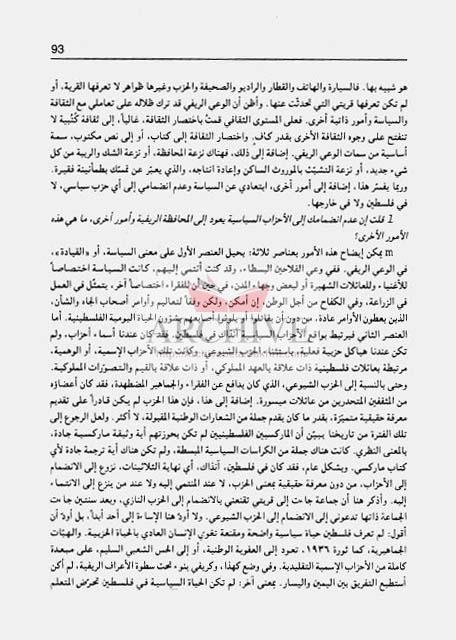 93
هو شبيه بها. فالسيارة والهاتف والقطار والراديو والصحيفة والحزب وغيرها ظواهر لا تعرفها القرية، أو
لم تكن تعرفها قريتي التي تحدثت عنها. وأظن أن الوعي الريفي قد ترك ظلاله على تعاملي مع الثقافة
والسياسة وأمور ذاتية أخرى. فعلى المستوى الثقافي قمت باختصار الثقافة، غالباً، إلى ثقافة كُتُبية لا
تنفتح على وجوه الثقافة الأخرى بقدر كاف. واختصار الثقافة إلى كتاب، أو إلى نص مكتوب، سمة
أساسية من سمات الوعي الريفي. إضافة إلى ذلك، فهناك نزعة المحافظة، أو نزعة الشك والريبة من كل
شيء جديد، أو نزعة التشبّث بالموروث الساكن وإعادة انتاجه، والذي يعبّر عن تمسّك بطمأنينة فقيرة.
وربما يفسّر هذا، إضافة إلى أمور أخرى، ابتعادي عن السياسة وعدم انضمامي إلى أي حزب سياسي، لا
في فلسطين ولا في خارجها.
قلت إن عدم انضمامك إلى الأحزاب السياسية يعود إلى المحافظة الريفية وأمور أخرى، ما هي هذه
الأمور الأخرى؟
m يمكن إيضاح هذه الأمور بعناصر ثلاثة: يحيل العنصر الأول على معنى السياسة، أو «القيادة»،
في الوعي الريفي. ففي وعي الفلاحين البسطاء، وقد كنت أنتمي إليهم، كانت السياسة اختصاصاً
للأغنياء وللعائلات الشهيرة أو لبعض وجهاء المدن، في حين أن للفقراء اختصاصاً آخر، يتمثّل في العمل
في الزراعة، وفي الكفاح من أجل الوطن، إن أمكن، ولكن وفقاً لتعاليم وأوامر أصحاب الجاه والشأن،
الذين يعطون الأوامر عادة، من دون أن يقاتلوا أو يلوثوا أصابعهم بشؤون الحياة اليومية الفلسطينية. أما
العنصر الثاني فيرتبط بواقع الأحزاب السياسية آنذاك في فلسطين. لقد كان عندنا أسماء أحزاب، ولم
تكن عندنا هياكل حزبية فعلية، باستثناء الحزب الشيوعي. وكانت تلك الأحزاب الإسمية، أو الوهمية،
مرتبطة بعائلات فلسطينية ذات علاقة بالعهد المملوكي، أو ذات علاقة بالقيم والتصوّرات المملوكية.
وحتى بالنسبة إلى الحزب الشيوعي، الذي كان يدافع عن الفقراء والجماهير المضطهدة، فقد كان أعضاؤه
من المثقفين المتحدرين من عائلات ميسورة. إضافة إلى هذا، فإن هذا الحزب لم يكن قادراً على تقديم
معرفة حقيقية متميّزة، بقدر ما كان يقدم جملة من الشعارات الوطنية المقبولة، لا أكثر. ولعل الرجوع إلى
تلك الفترة من تاريخنا يبيّن أن الماركسيين الفلسطينيين لم تكن بحوزتهم أية وثيقة ماركسية جادة،
بالمعنى النظري. كانت هناك جملة من الكراسات السياسية المبسطة، ولم تكن هناك أية ترجمة جادة لأي
كتاب ماركسي. وبشكل عام، فقد كان في فلسطين، آنذاك، أي نهاية الثلاثينات، نزوع إلى الانضمام
إلى الأحزاب، من دون معرفة حقيقية بمعنى الحزب، لا عند المنتمي إليه ولا عند من ينزع إلى الانتماء
إليه. وأذكر هنا أن جماعة جاءت إلى قريتي تقنعني بالانضمام إلى الحزب النازي، وبعد سنتين جاءت
الجماعة ذاتها تدعوني إلى الانضمام إلى الحزب الشيوعي. ولا أودّ هنا الإساءة إلى أحد أبداً، بل أودّ أن
أقول: لم تعرف فلسطين حياة سياسية واضحة ومقنعة تقوي الإنسان العادي بالحياة الحزبية. والهبّات
الجماهيرية، كما ثورة ١٩٣٦، تعود إلى العفوية الوطنية، أو إلى الحس الشعبي السليم، على مبعدة
كاملة من الأحزاب الإسمية التقليدية. وفي وضع كهذا، وكريفي ينوء تحت سطوة الأعراف الريفية، لم أكن
أستطيع التفريق بين اليمين واليسار. بمعنى آخر: لم تكن الحياة السياسية في فلسطين تحرّض المتعلم
ARCHIVE